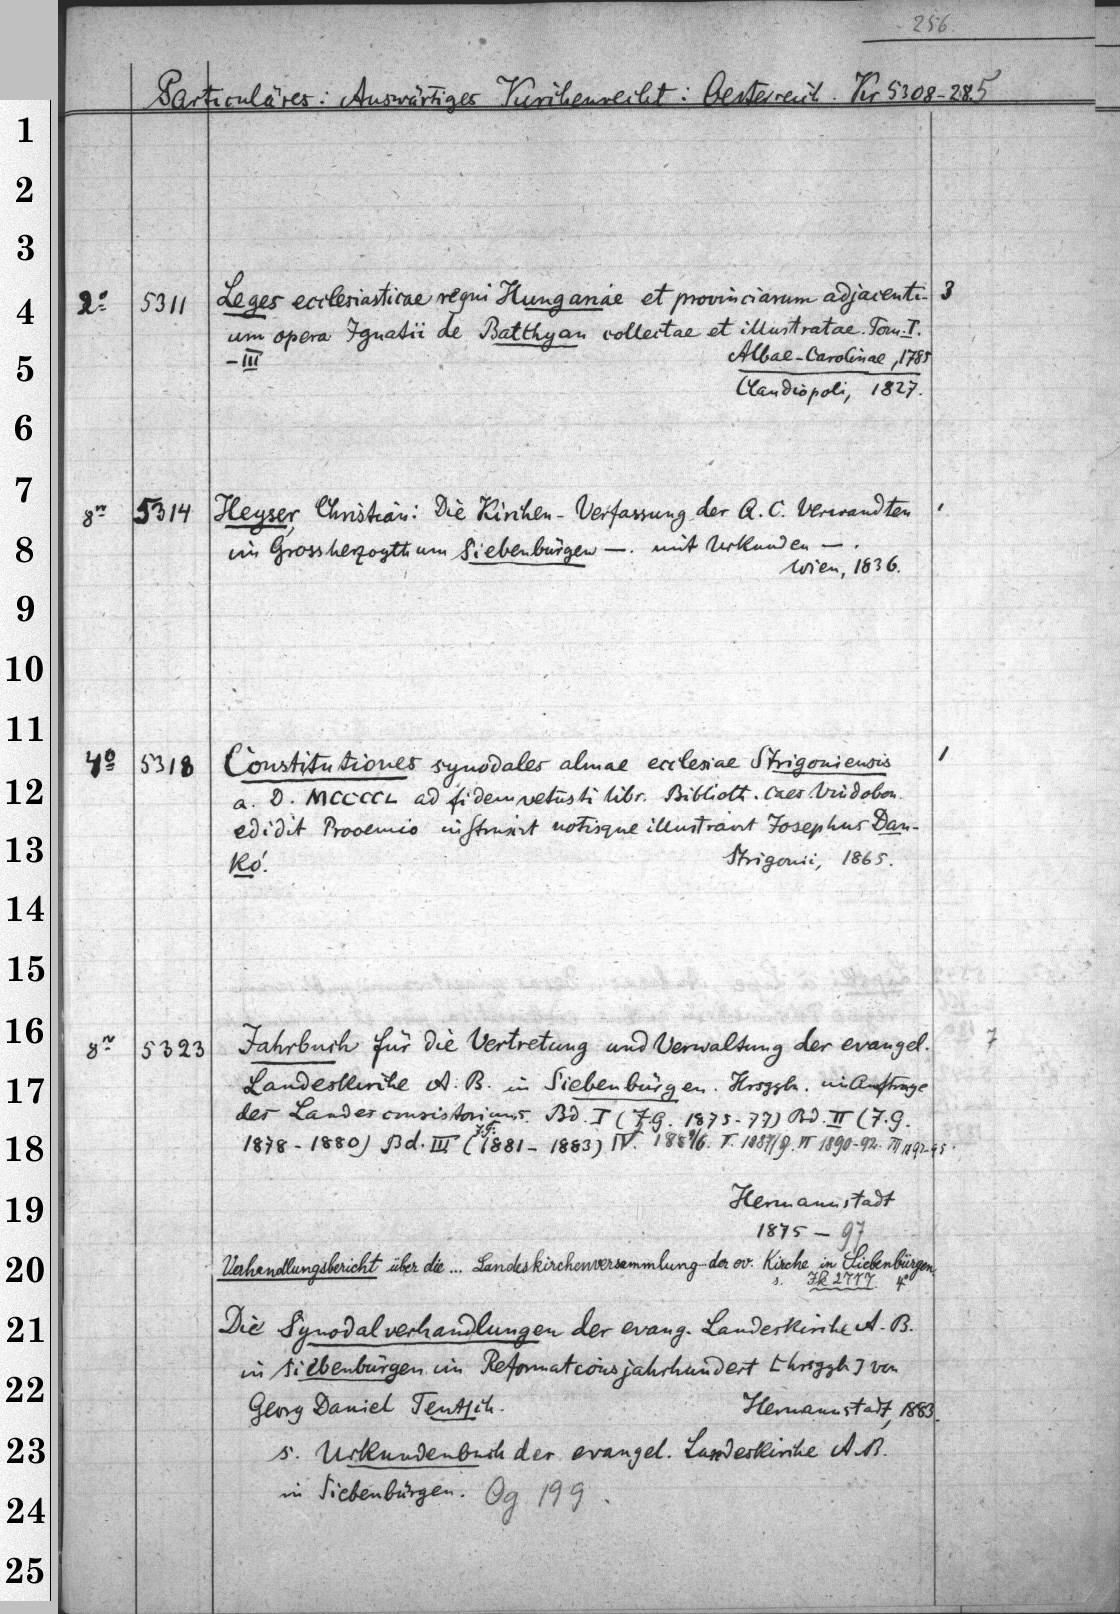 256.
Particuläres: Auswärtiges Kirchenrecht: Oesterreich. Kr 5308-285
1
2
3
2° 5311 Leges ecclesiasticae regni Hungariae et provinciarum adjacenti- 3
4
um opera Ignatii de Batthyan collectae et illustratae. Tom. I.
-III Albae-Carolinae, 1785
5
Claudiopoli, 1827.
6
7
8° 5314 Heyser, Christian: Die Kirchen-Verfassung der A. C. Verwandten 1
8
im Grossherzogthum Siebenbürgen —. mit Urkunden —.
Wien, 1836.
9
10
11
4° 5318 Constitutiones synodales almae ecclesiae Strigoniensis 1
12
a. D. MCCCCL ad fidem vetusti libr. Biblioth. Caes Vindobon.
edidit Prooemio instruxit notisque illustravit Josephus Dan-
13
kó. Strigonii, 1865.
14
15
16
8° 5323 Jahrbuch für die Vertretung und Verwaltung der evangel. 7
17
Landeskirche A. B. in Siebenbürgen. Hrsggb. im Auftrage
des Landesconsistoriums. Bd. I (J.G. 1875-77) Bd. II (J.G.
18
1878-1880) Bd. III (J.G. 1881-1883) IV. 1884/6. V. 1887/9. VI 1890-92. VII 1892-95.
19
Hermannstadt
1875-97
20
Verhandlungsbericht über die ... Landeskirchenversammlung der ev. Kirche in Siebenbürgen.
s. Jk 2777 4°
21
Die Synodalverhandlungen der evang. Landeskirche A. B.
22
in Siebenbürgen im Reformationsjahrhundert [hrsggb] von
Georg Daniel Teutsch. Hermannstadt, 1883.
23
s. Urkundenbuch der evangel. Landeskirche A. B.
24
in Siebenbürgen. Og 199.
25